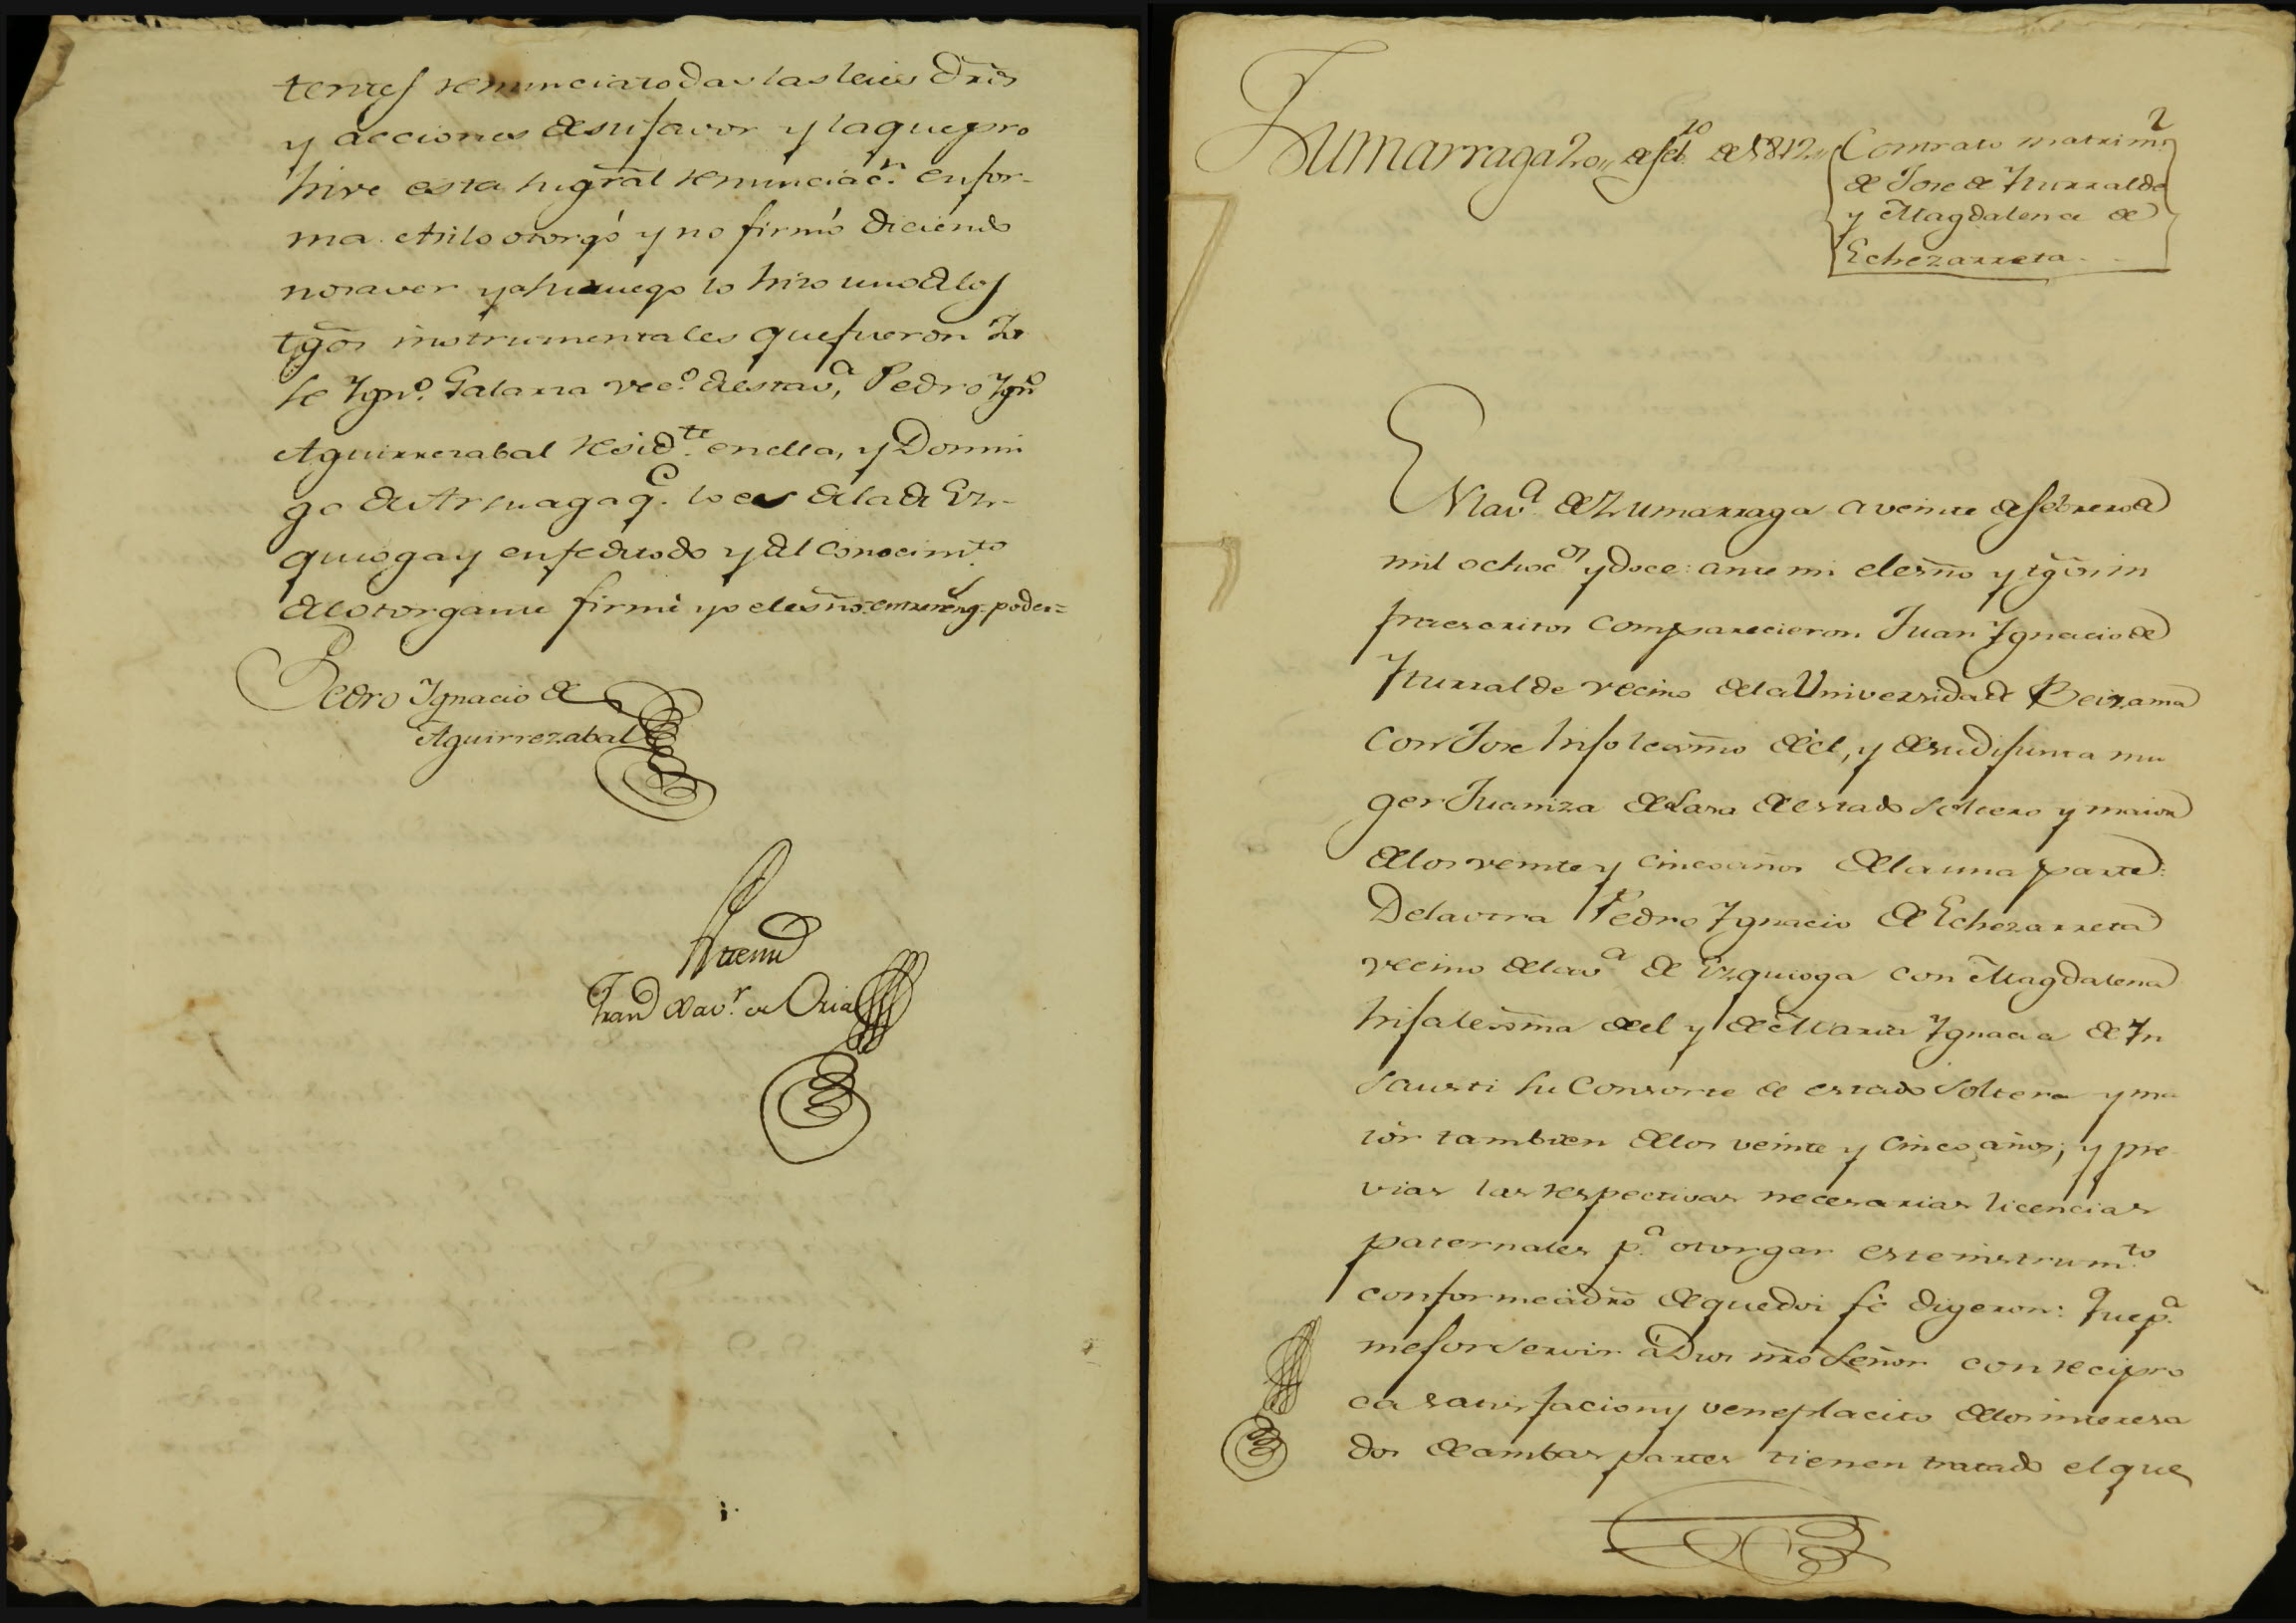 tentes renunciatodas las leies dr̃os
y acciones desu favor y laque pro
hive esta su gr̃al renunciac.n enfor-
ma. Asilo otorgó y no firmó diciendo
nosaver y a su ruego lo hizo uno delos
tgõs instrumentales que fueron Jo
se Ygn.o Galarza vec.o de esta v.a, Pedro Ygn.o
Aguirrezabal resid.te en ella, y Domin
go de Arsuaga q.e lo es dela de Ez-
quioga y enfe detodo y del conocim.to
del otorgante firmé yo el esñò: entrereng.s poder=
Pedro Ygnacio de
Aguirrezabal
Antemi
Fran.co Xav.r de Oria
Zumarraga 20,, de feb.ro de 1812,,
Contrato matrim.l
de Jose de Yturralde
y Magdalena de
Echezarreta..
En la v.a de Zumarraga a veinte de febrero de
mil ochoc.os y doce: ante mi el esñò y tgõs in
fraescritos comparecieron Juan Ygnacio de
Yturralde vecino dela Universidad de Beizama
con Jose hijo lexmõ de èl, y desu difunta mu
ger Juaniza de Lasa de estado soltero y maior
delos veinte y cinco años dela una parte:
Dela otra Pedro Ygnacio de Echezarreta
vecino dela v.a de Ezquioga con Magdalena
hija lexma de el y de Maria Ygnacia de Yn
sausti su Consorte de estado soltera y ma
ior tambien delos veinte y cinco años; y pre
vias las respectivas necesarias licencias
paternales p.a otorgar este instrum.to
conforme à dr̃o de que doi fé digeron: Que p.a
mejor servir à Dios nr̃o Señor con recipro
ca satisfacion y veneplacito delos interesa
dos de ambas partes tienen tratado el que